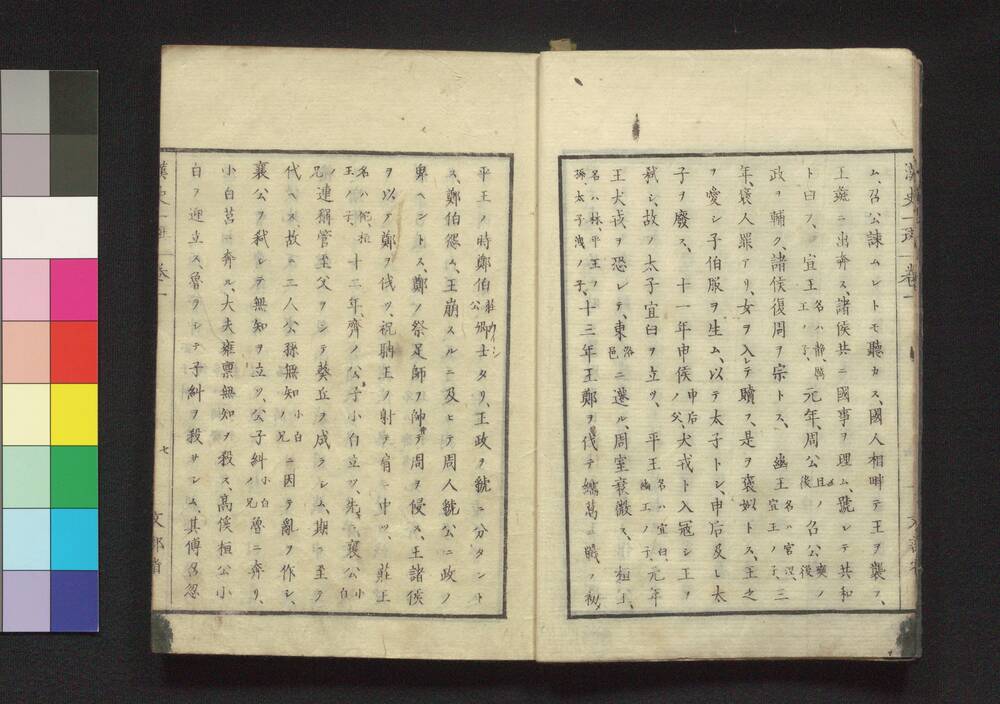 ム、召公諫ムレトモ聽カス、國人相畔テ王ヲ襲フ、
王彘ニ出奔ス、諸侯共ニ國事ヲ理ム、號シテ共和
ト曰フ、宣王名ハ靜、厲王ノ子、元年、周公且ノ後召公奭ノ後
政ヲ輔ク、諸侯復周ヲ宗トス、幽王名ハ宮涅、宣王ノ子、三
年、褒人罪アリ、女ヲ入レテ贖フ、是ヲ褒姒トス、王之
ヲ愛シ子伯服ヲ生ム、以テ太子トシ、申后及レ太
子ヲ廢ス、十一年申侯申后ノ父、犬戎ト入冦シ王ヲ
弑シ、故ノ太子宜臼ヲ立ツ、平王名ハ宜臼、幽王ノ子、元年
王犬戎ヲ恐レテ、東洛邑ニ遷ル、周室衰微ス、桓王、
名ハ林、平王ノ孫、太子洩ノ子、十三年王鄭ヲ伐テ繻葛ニ戰ノ初
平王ノ時鄭伯莊公卿士タリ、王政ヲ虢ニ分タント
ス、鄭伯怨ム、王崩スルニ及ヒテ周人虢公ニ政ノ
卑ヘントス、鄭ノ祭足師ヲ帥テ周ヲ侵ス、王諸侯
ヲ以ア鄭ヲ伐ツ、祝聃王ノ射テ肩ニ中ツ、莊王
名ハ佗、桓王ノ子、十二年、齊ノ公子小白立ツ、先キ襄公小白ノ兄
連稱管至父ヲシテ葵丘ヲ戍ラシム、期ニ至テ
代ヘス故ニ二人公孫無知小白ノ兄ニ因テ亂ヲ作シ、
襄公ヲ弑シテ無知ヲ立ツ、公子糾小白ノ兄魯ニ奔リ、
小白莒ニ奔ル、大夫雍廩無知ヲ殺ス、高傒桓公小
白ヲ迎立ス、魯ヲシテ子糾ヲ殺サシム、其傅召忽
七